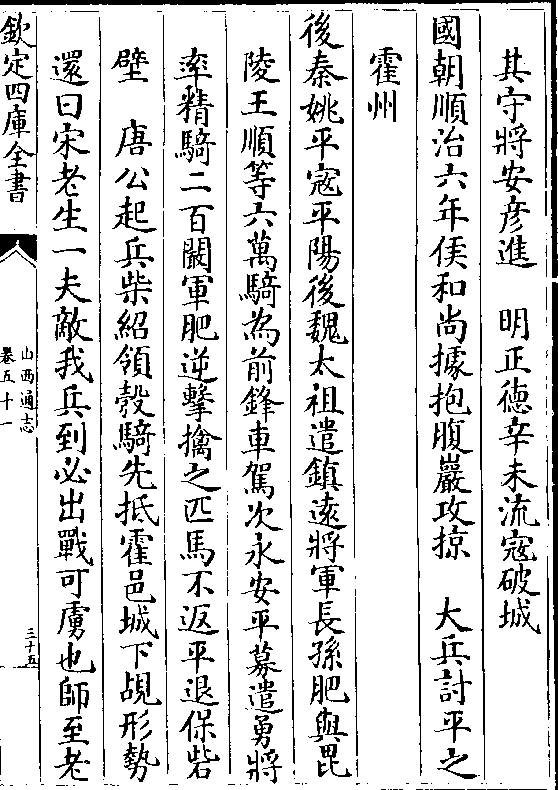 其守將安彦進　明正徳辛未流寇破城
國朝順治六年侯和尚據抱腹巖攻掠　大兵討平之
霍州
後秦姚平寇平陽後魏太祖遣鎮遠將軍長孫肥與毘
陵王順等六萬騎為前鋒車駕次永安平募遣勇將
率精騎二百闞軍肥逆擊擒之匹馬不返平退保砦
壁　唐公起兵柴紹領彀騎先抵霍邑城下覘形勢
還曰宋老生一夫敵我兵到必出戰可虜也師至老
欽定四庫全書
山西通志
卷五十一
三十五